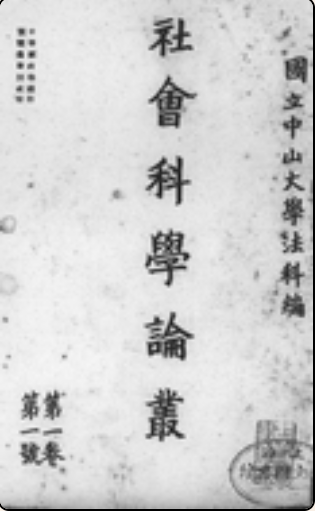 國立中山大學法科編
社會科學論叢
第一卷
第一號